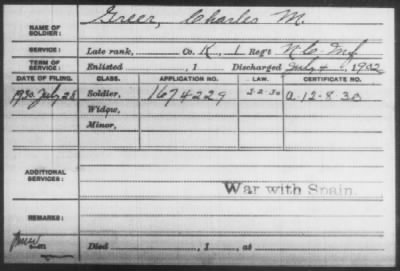 NAME OF SOLDIER: Greer, Charles M.
SERVICE: Late rank, Co. K, 1 Reg't N.C. Inf
TERM OF SERVICE: Enlisted , 1 Discharged July 1902
DATE OF FILING. CLASS. APPLICATION NO. LAW. CERTIFICATE NO.
1930 July 28 Soldier, 1674229 6-2-30 A-12-8-30
Widow,
Minor,
ADDITIONAL SERVICES:
War with Spain.
REMARKS:
Died , 1 , at